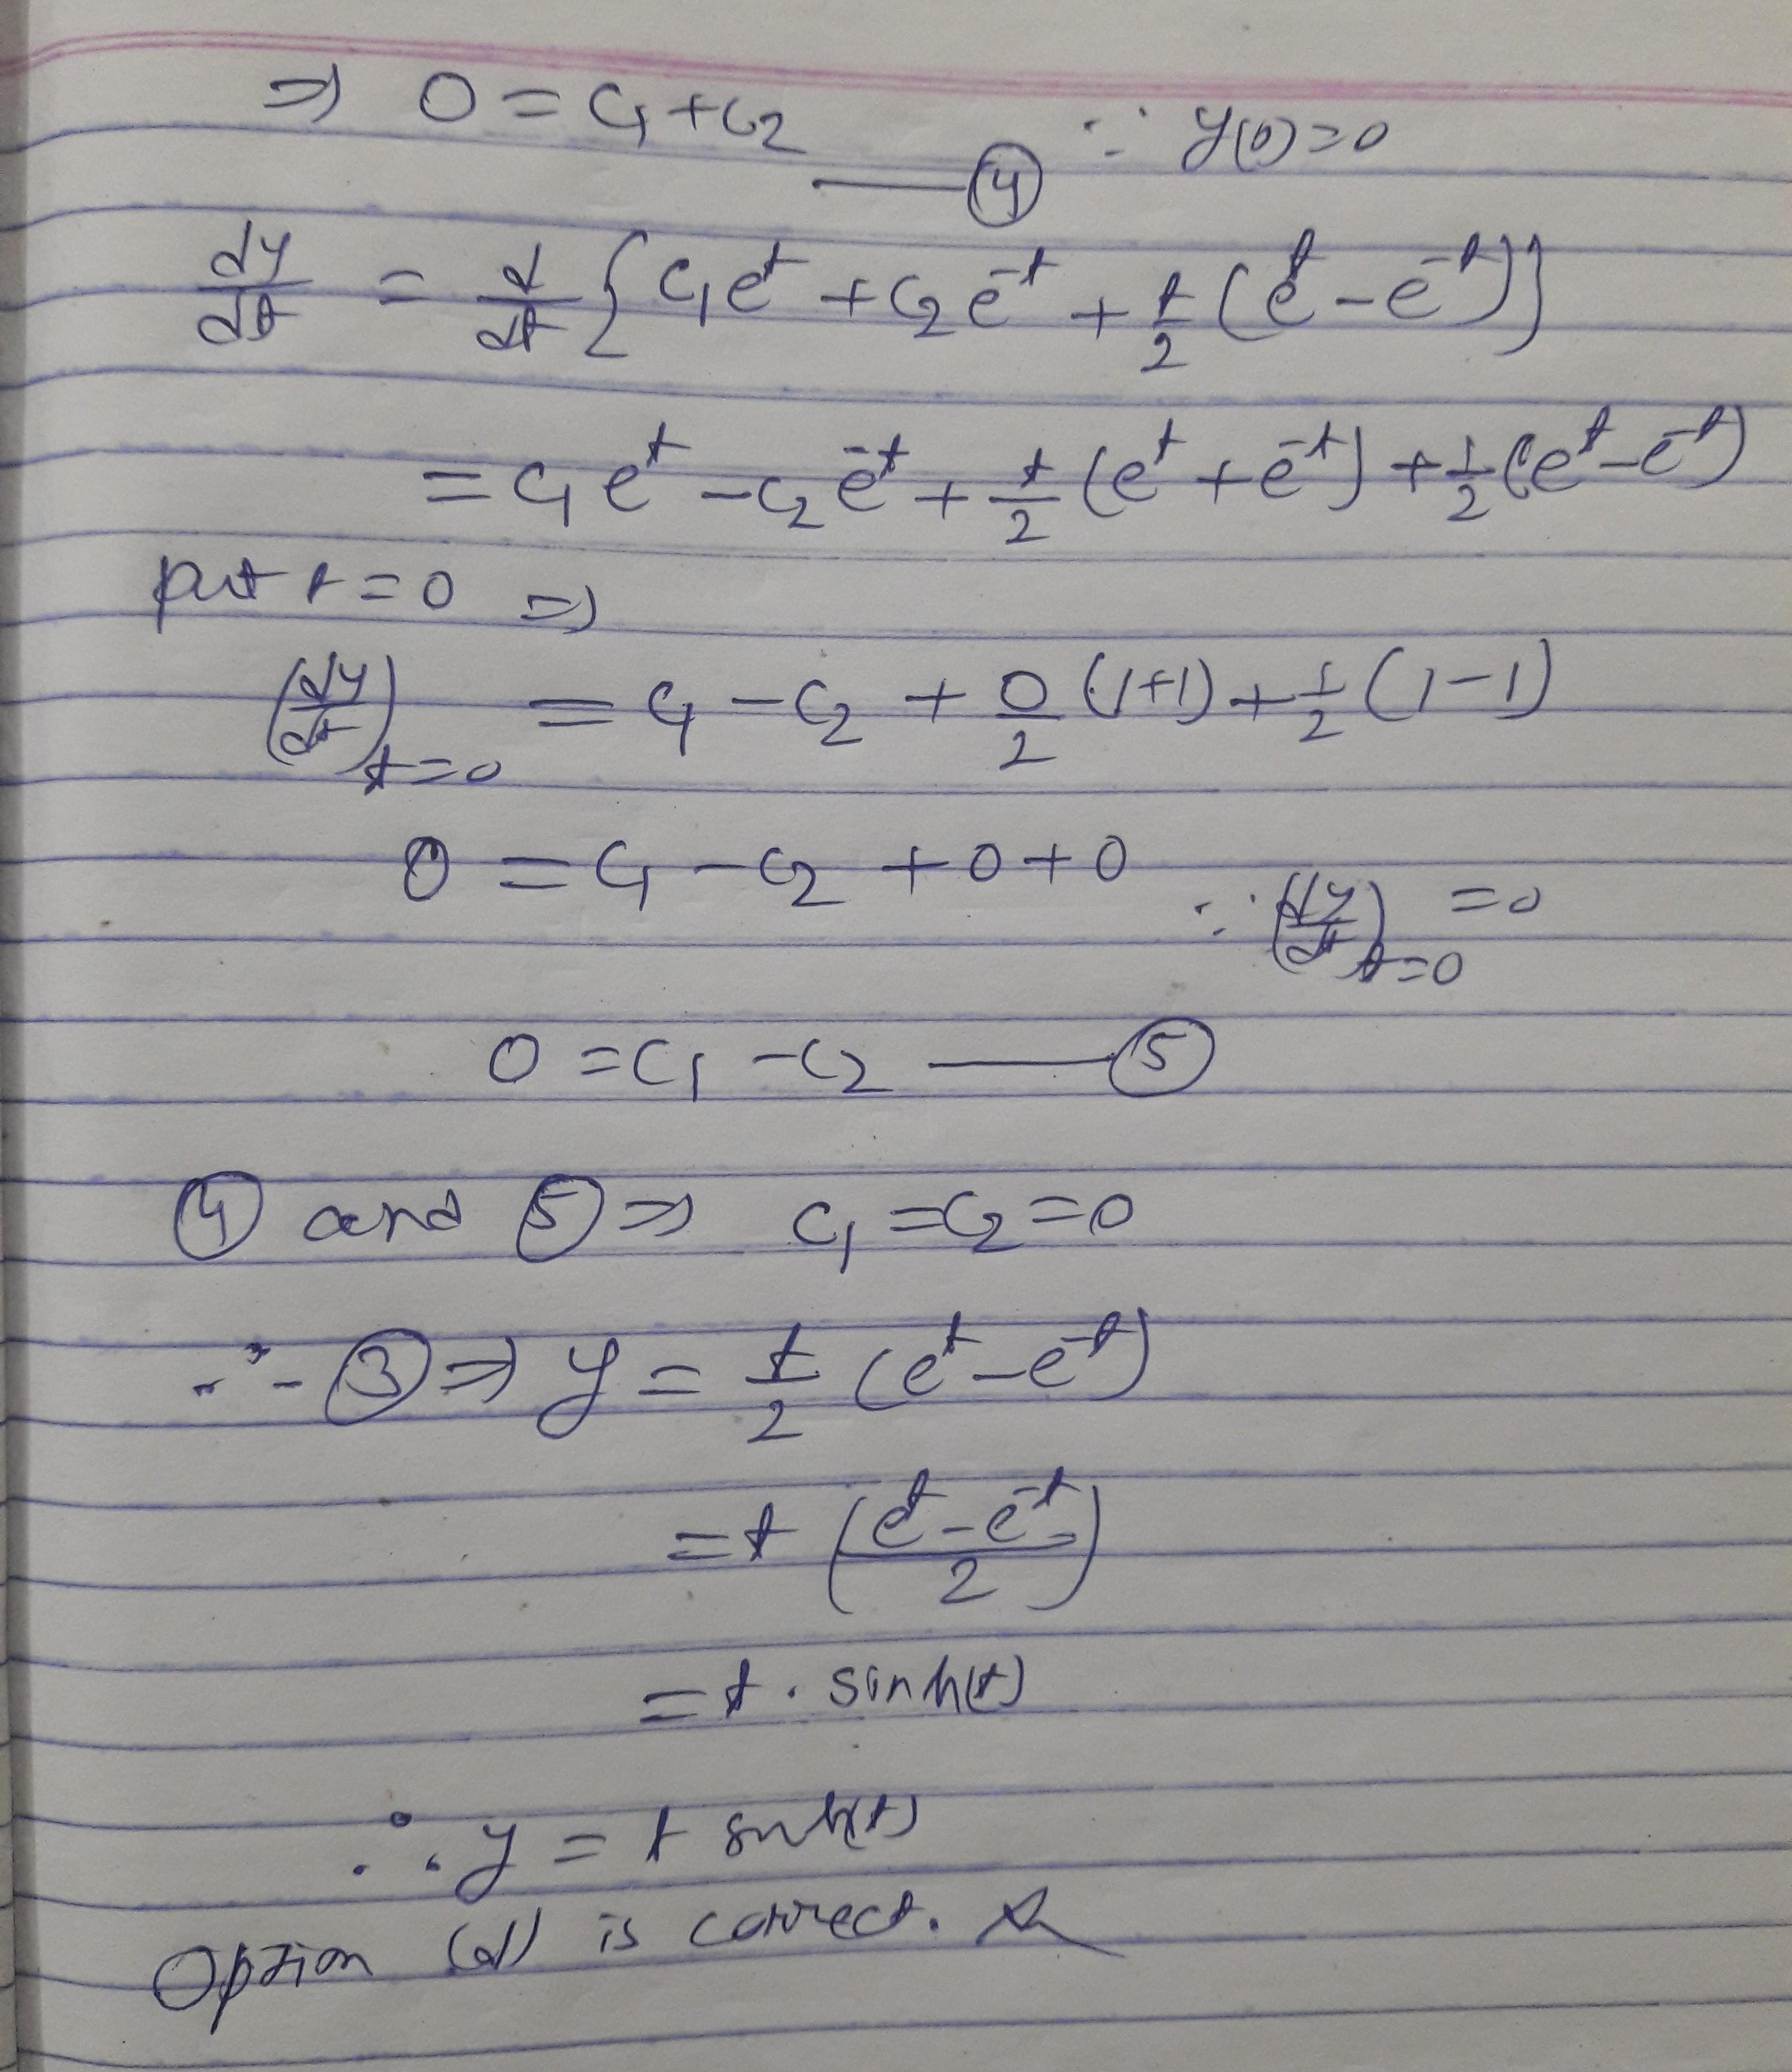 ⇒ 0 = C₁ + C₂ —— ④ ∵ y(0) = 0
dy/dt = d/dt { C₁e^t + C₂e^-t + t/2 (e^t - e^-t) }
= C₁e^t - C₂e^-t + t/2 (e^t + e^-t) + 1/2 (e^t - e^-t)
put t = 0 ⇒
(dy/dt)_t=0 = C₁ - C₂ + 0/2 (1+1) + 1/2 (1-1)
0 = C₁ - C₂ + 0 + 0
∵ (dy/dt)_t=0 = 0
0 = C₁ - C₂ —— ⑤
④ and ⑤ ⇒ C₁ = C₂ = 0
∴ ③ ⇒ y = t/2 (e^t - e^-t)
= t ((e^t - e^-t)/2)
= t · sinh(t)
∴ y = t sinh(t)
Option (d) is correct.